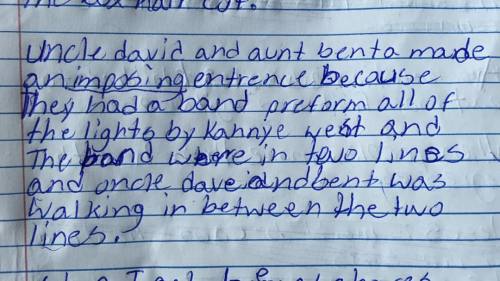 uncle david and aunt benta made
an imposing entrence because
They had a band preform all of
the lights by Kannye west and
The band where in two lines
and oncle dave and bent was
walking in between the two
lines.